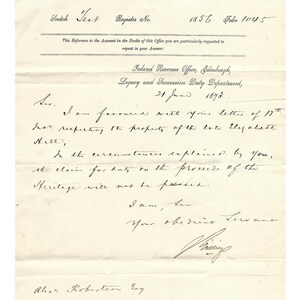 Scotch Test Register No. 1856 Folio 1045
This Reference to the Account in the Books of this Office you are particularly requested to
repeat in your Answer.
Inland Revenue Office, Edinburgh,
Legacy and Succession Duty Department,
21 June 1873
Sir,
I am favoured with your letter of 18th
inst. respecting the property of the late Elizabeth
Hill,
In the circumstances explained by you,
the claim for duty on the proceeds of the
Heritage will not be pressed.
I am, Sir
Your obedient Servant
Alexr Robertson Esq